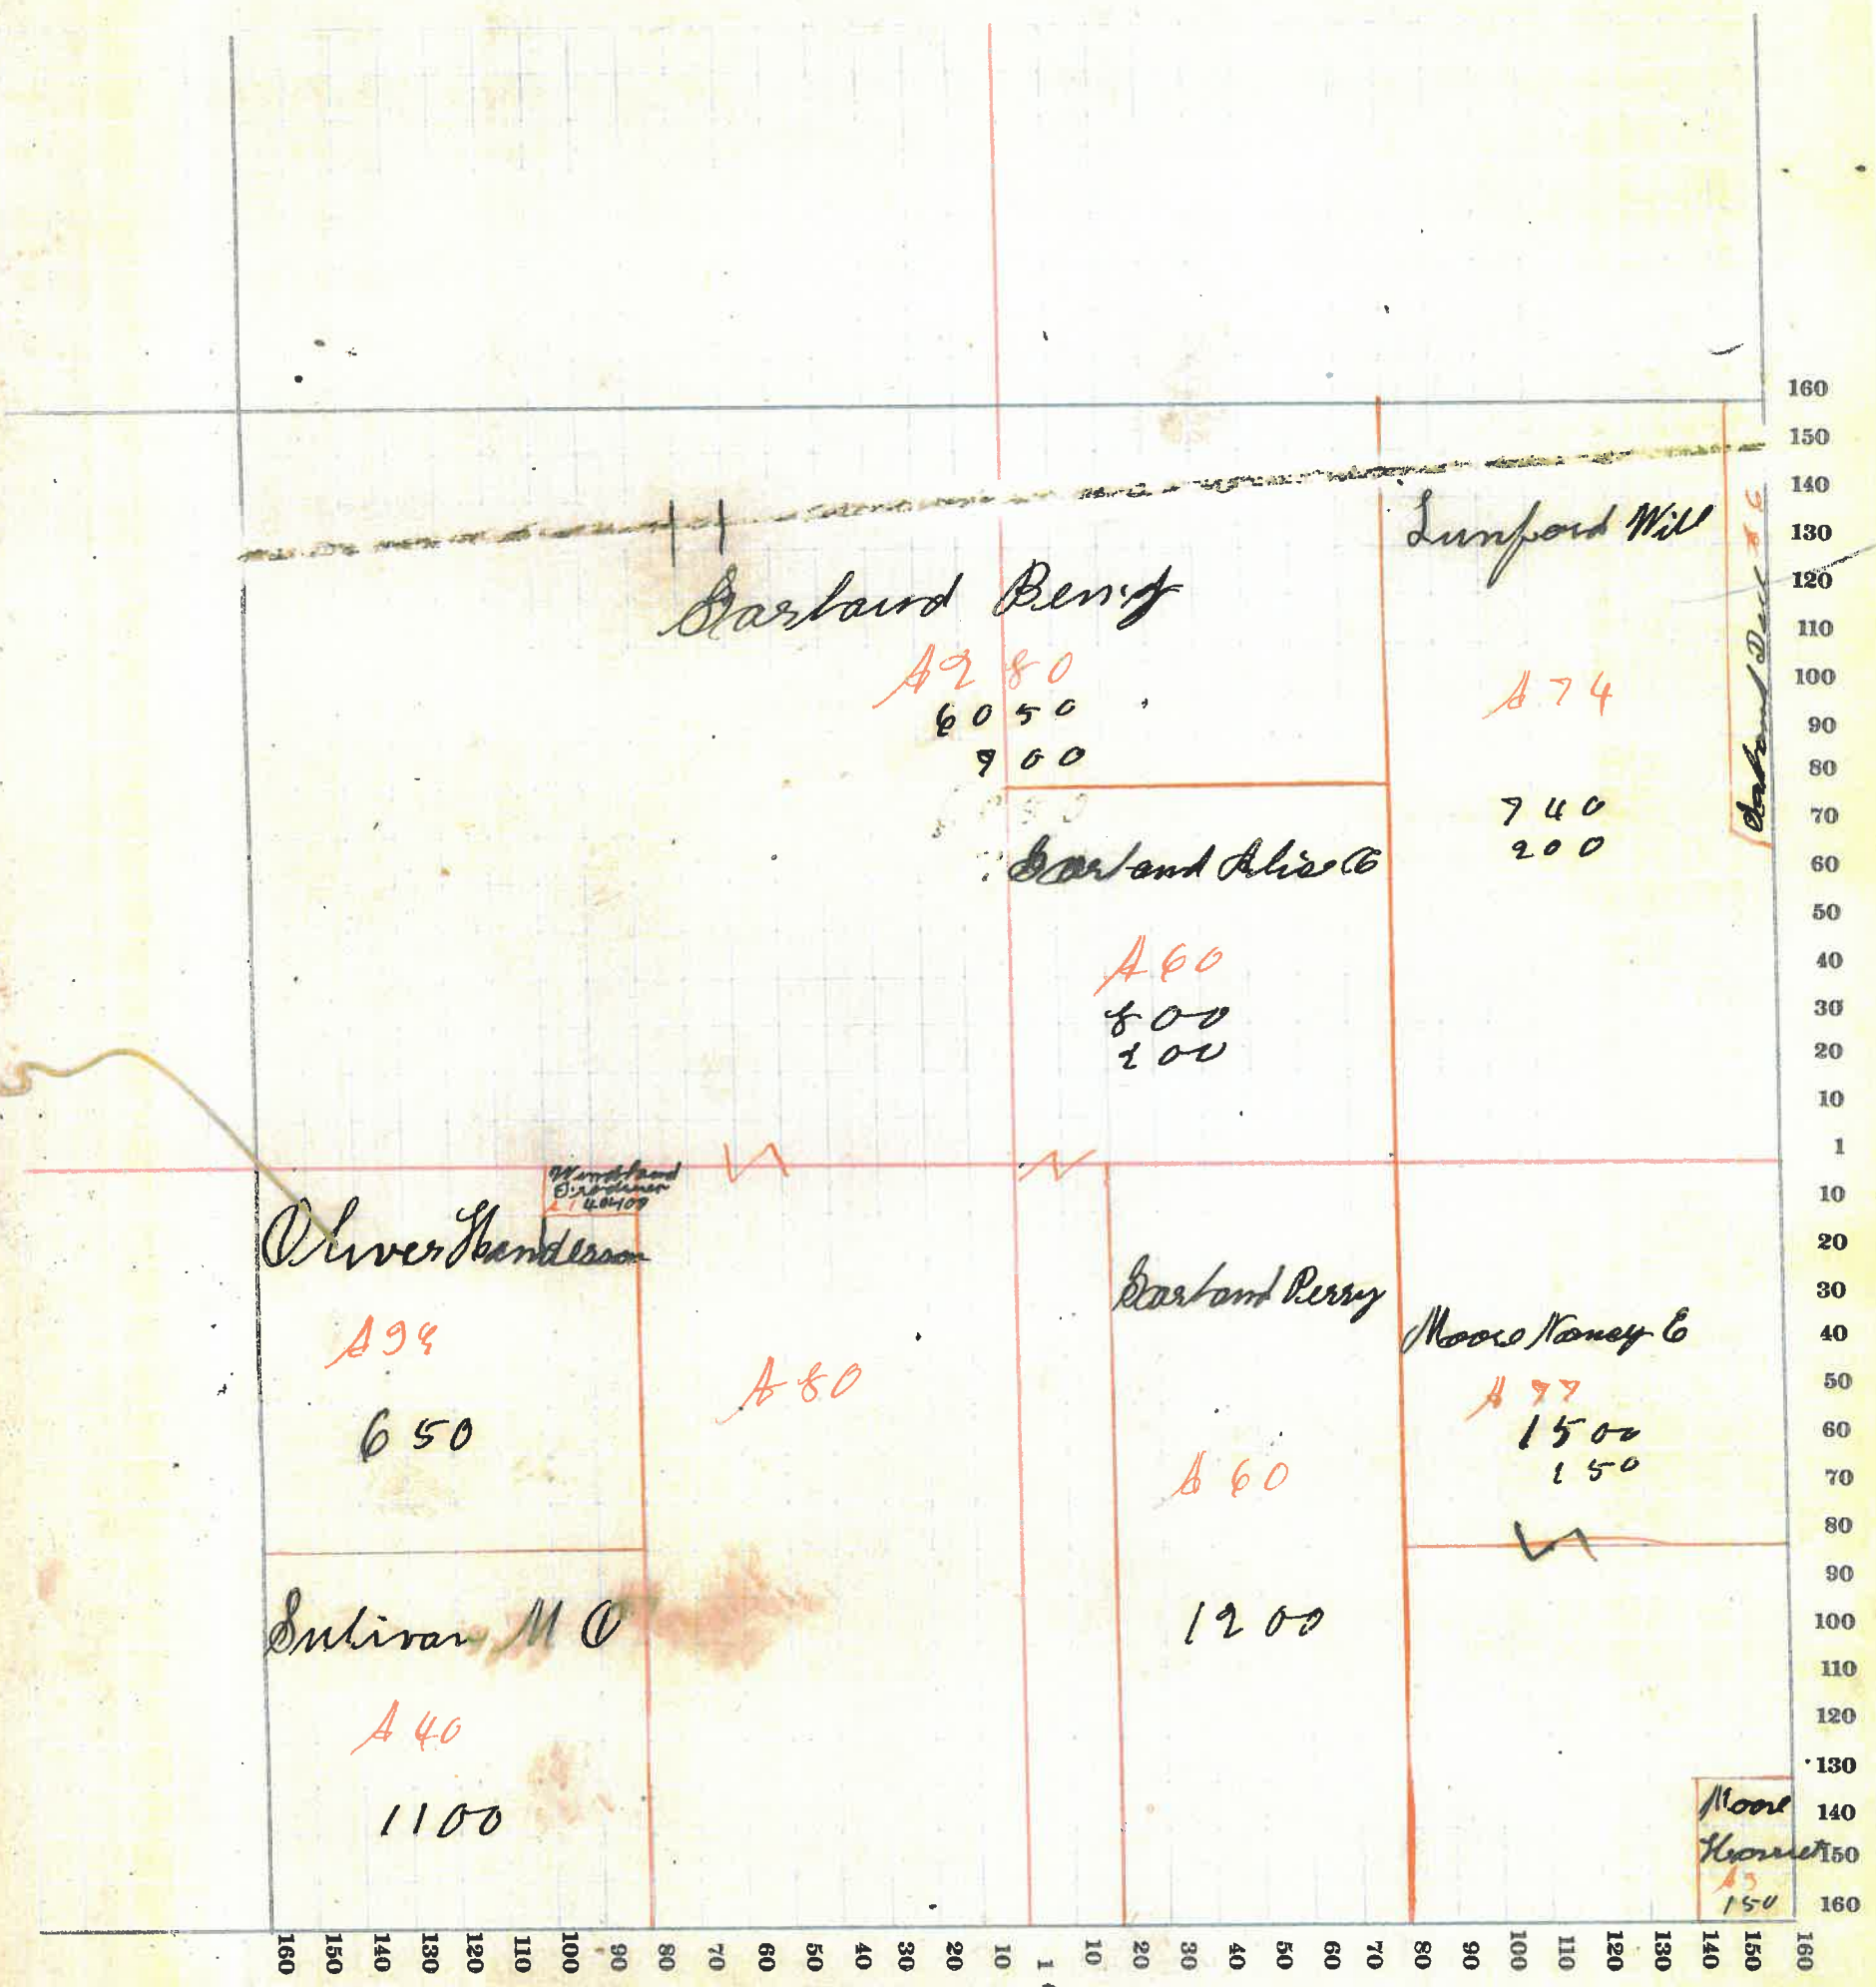 160
150
140
130
120
110
100
90
80
70
60
50
40
30
20
10
1
10
20
30
40
50
60
70
80
90
100
110
120
130
140
150
160
Garland Benj
A 280
6050
900
Lunford Will
A 74
740
200
Garland
Garland Alice C
A 60
800
200
Oliver Henderson
650
A 80
Garland Perry
A 60
1200
Moore Nancy E
A 77
1500
150
Sulivan M O
A 40
1100
Moore
Harriet
A 3
150
160 150 140 130 120 110 100 90 80 70 60 50 40 30 20 10 1 10 20 30 40 50 60 70 80 90 100 110 120 130 140 150 160